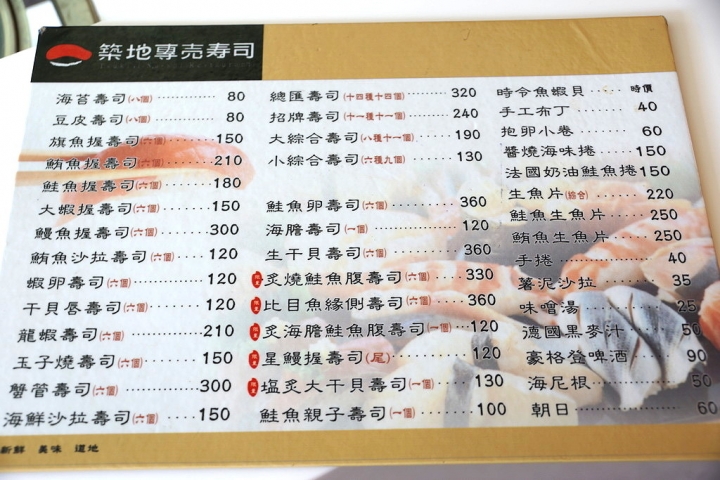 築地專売寿司
海苔壽司(八個) ………… 80
豆皮壽司(八個) ………… 80
旗魚握壽司(六個) ……… 150
鮪魚握壽司(六個) ……… 210
鮭魚握壽司(六個) ……… 180
大蝦握壽司(六個) ……… 150
鰻魚握壽司(六個) ……… 300
鮪魚沙拉壽司(六個) …… 120
蝦卵壽司(六個) ………… 120
干貝唇壽司(六個) ……… 120
龍蝦壽司(六個) ………… 210
玉子燒壽司(六個) ……… 150
蟹管壽司(六個) ………… 300
海鮮沙拉壽司(六個) …… 150
總匯壽司(十四種十四個) … 320
招牌壽司(十一種十一個) … 240
大綜合壽司(八種十一個) … 190
小綜合壽司(六種九個) …… 130
鮭魚卵壽司(六個) ……… 360
海膽壽司(一個) ………… 120
生干貝壽司(六個) ……… 360
炙燒鮭魚腹壽司(六個) … 330
比目魚緣側壽司(六個) … 360
炙海膽鮭魚腹壽司(一個) … 120
星鰻握壽司(尾) ………… 120
塩炙大干貝壽司(一個) … 130
鮭魚親子壽司(一個) …… 100
時令魚蝦貝 …… 時價
手工布丁 ……… 40
抱卵小卷 ……… 60
醬燒海味捲 …… 150
法國奶油鮭魚捲 150
生魚片(綜合) …… 220
鮭魚生魚片 …… 250
鮪魚生魚片 …… 250
手捲 ………… 40
薯泥沙拉 ……… 35
味噌湯 ………… 25
德國黑麥汁 …… 50
豪格登啤酒 …… 90
海尼根 ………… 50
朝日 ………… 60
新鮮 美味 道地